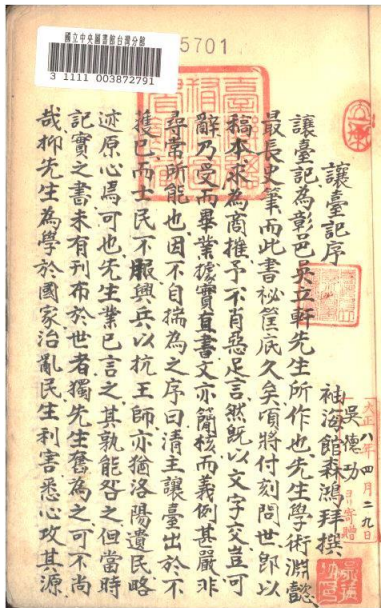 國立中央圖書館台灣分館
3 1111 003872791
5701
讓臺記序
袖海館森鴻拜撰
讓臺記為彰邑吳立軒先生所作也先生學術淵懿
最長史筆而此書祕篋底久矣頃將付刻問世郎以
稿本求為商榷予不肖惡足言然既以文字交豈可
辭乃受而畢業據實直書文亦簡核而義例其嚴非
尋常所能也因不自揣為之序曰清主讓臺出於不
獲已而士民不服興兵以抗王師亦猶洛陽遺民略
迹原心焉可也先生業已言之其孰能咎之但當時
記實之書未有刊布於世者獨先生奮為之可不尚
哉抑先生為學於國家治亂民生利害悉心攻其源
大正八年四月二九日
吳德功ヨリ寄贈